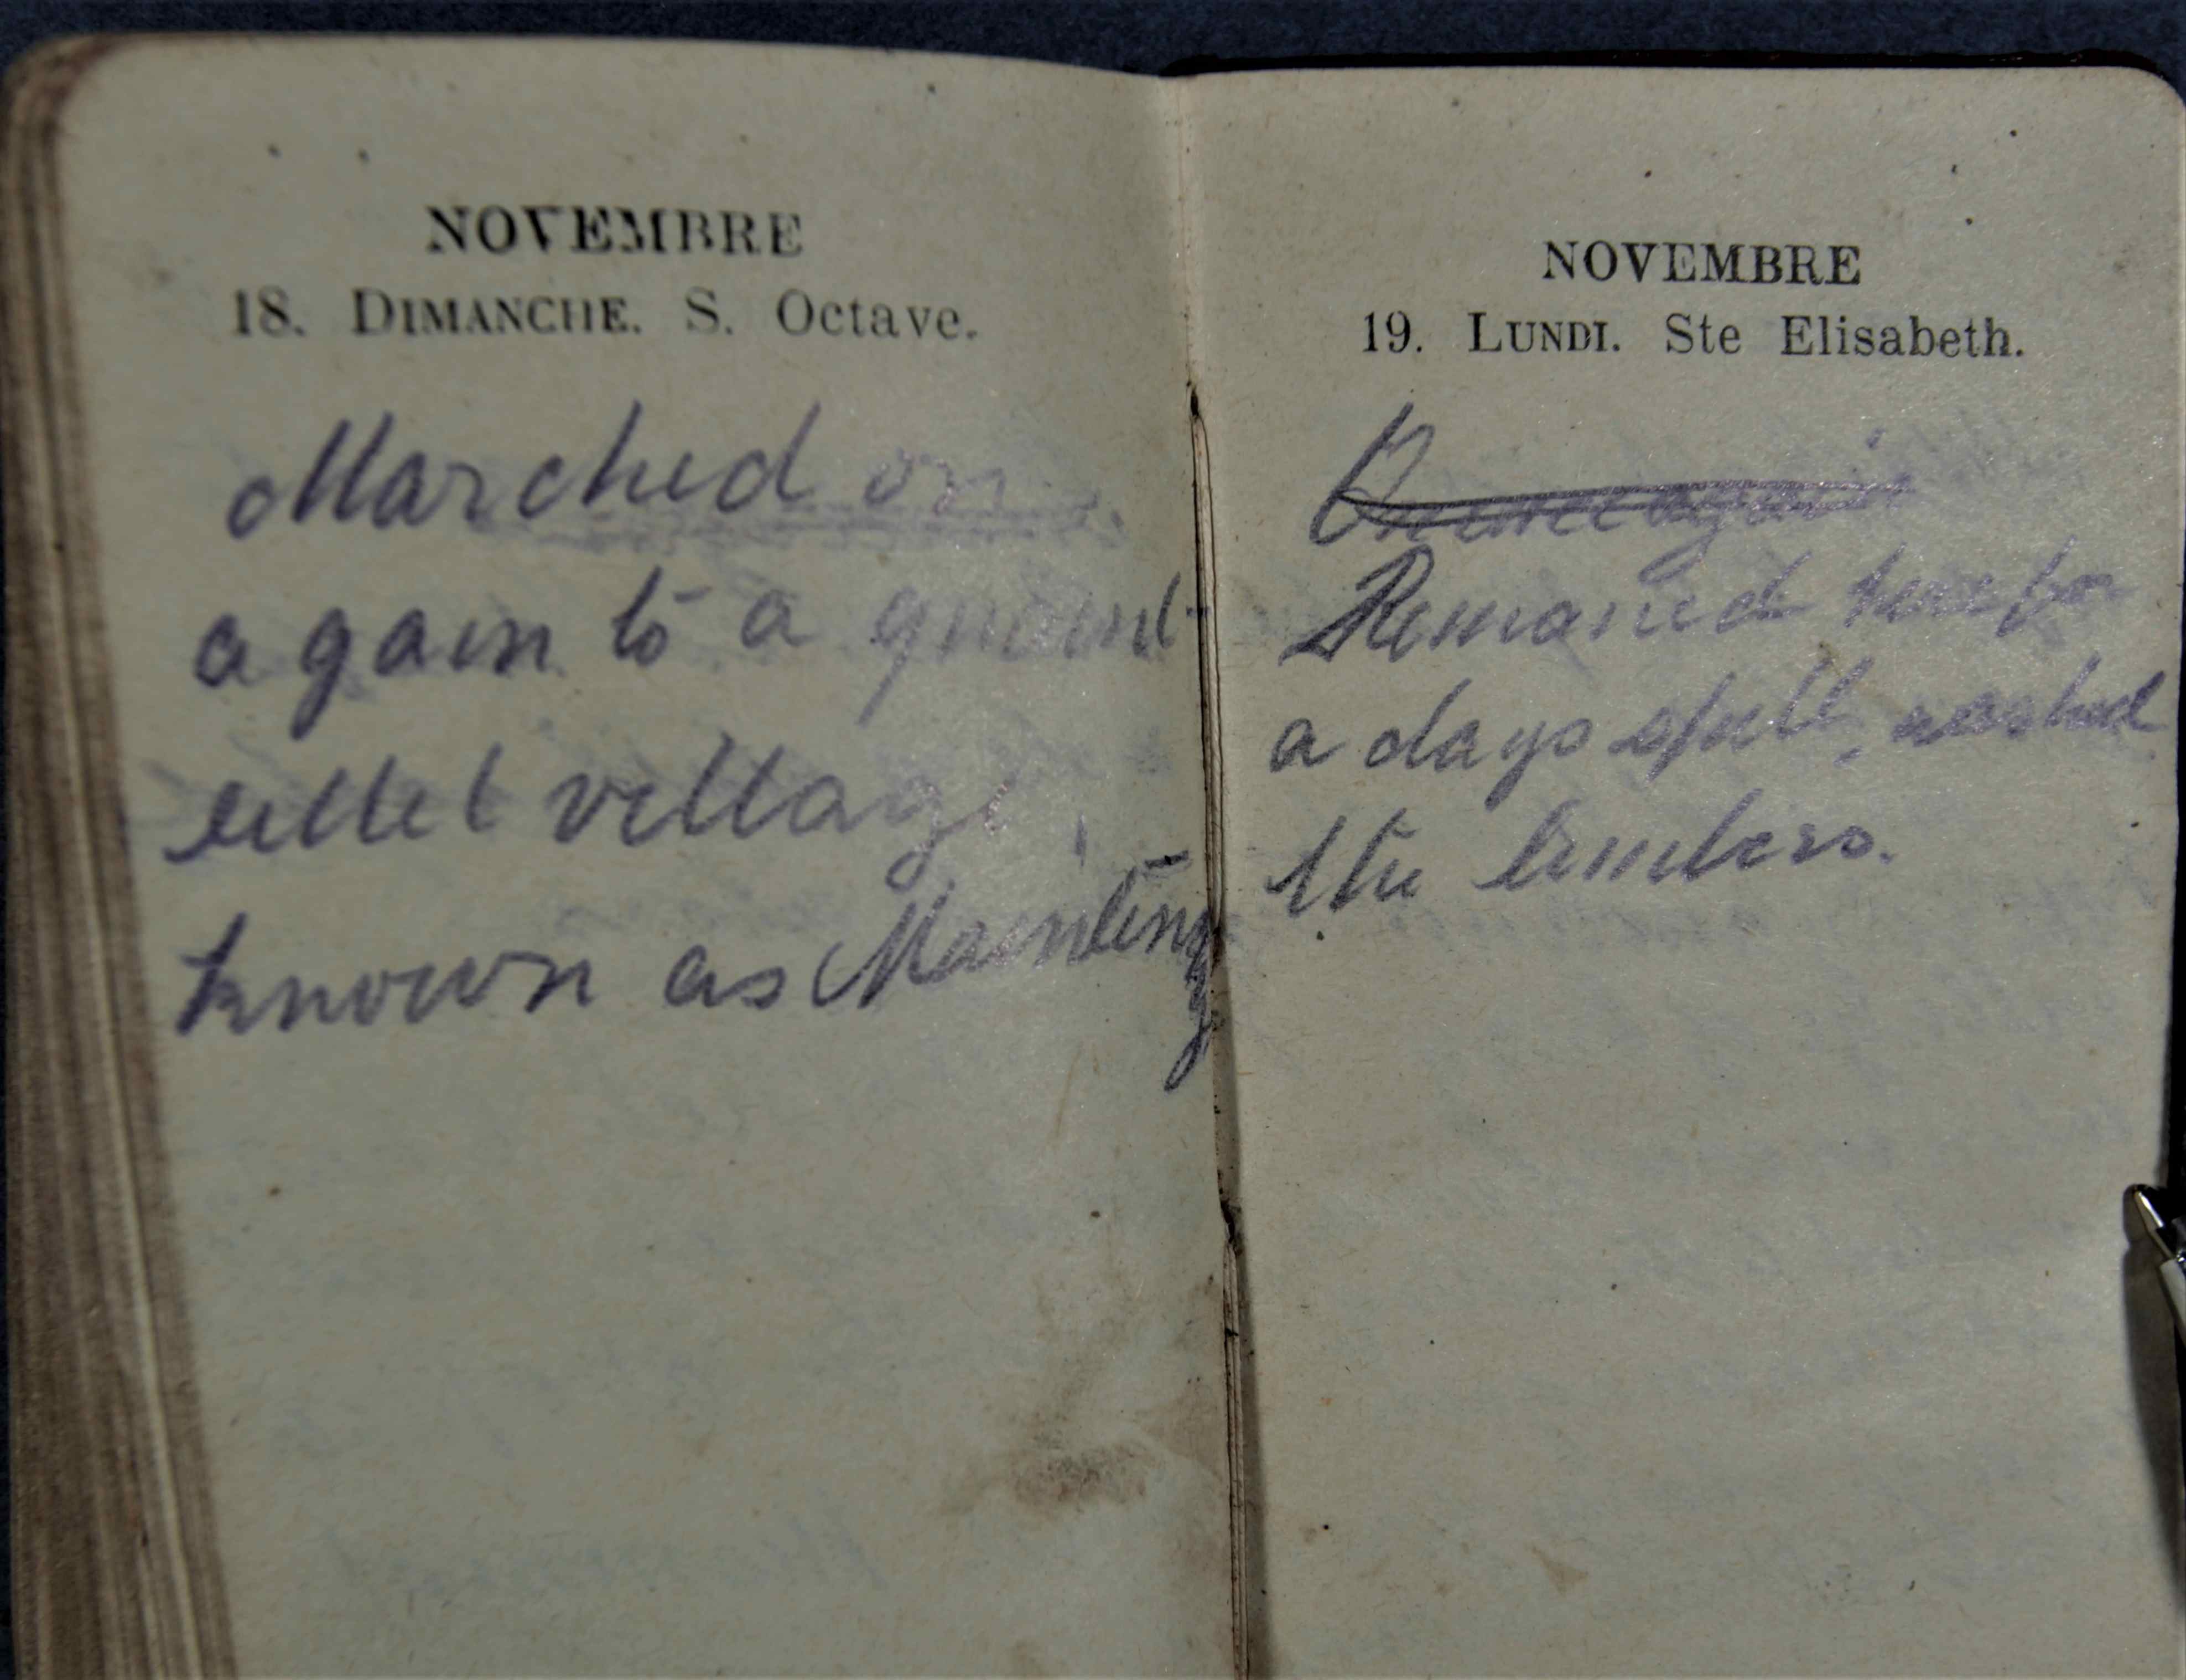 NOVEMBRE
18. DIMANCHE. S. Octave.
Marched on
again to a
littel village,
known as
NOVEMBRE
19. LUNDI. Ste Elisabeth.
Remained here for
a days spell, washed
the limbers.